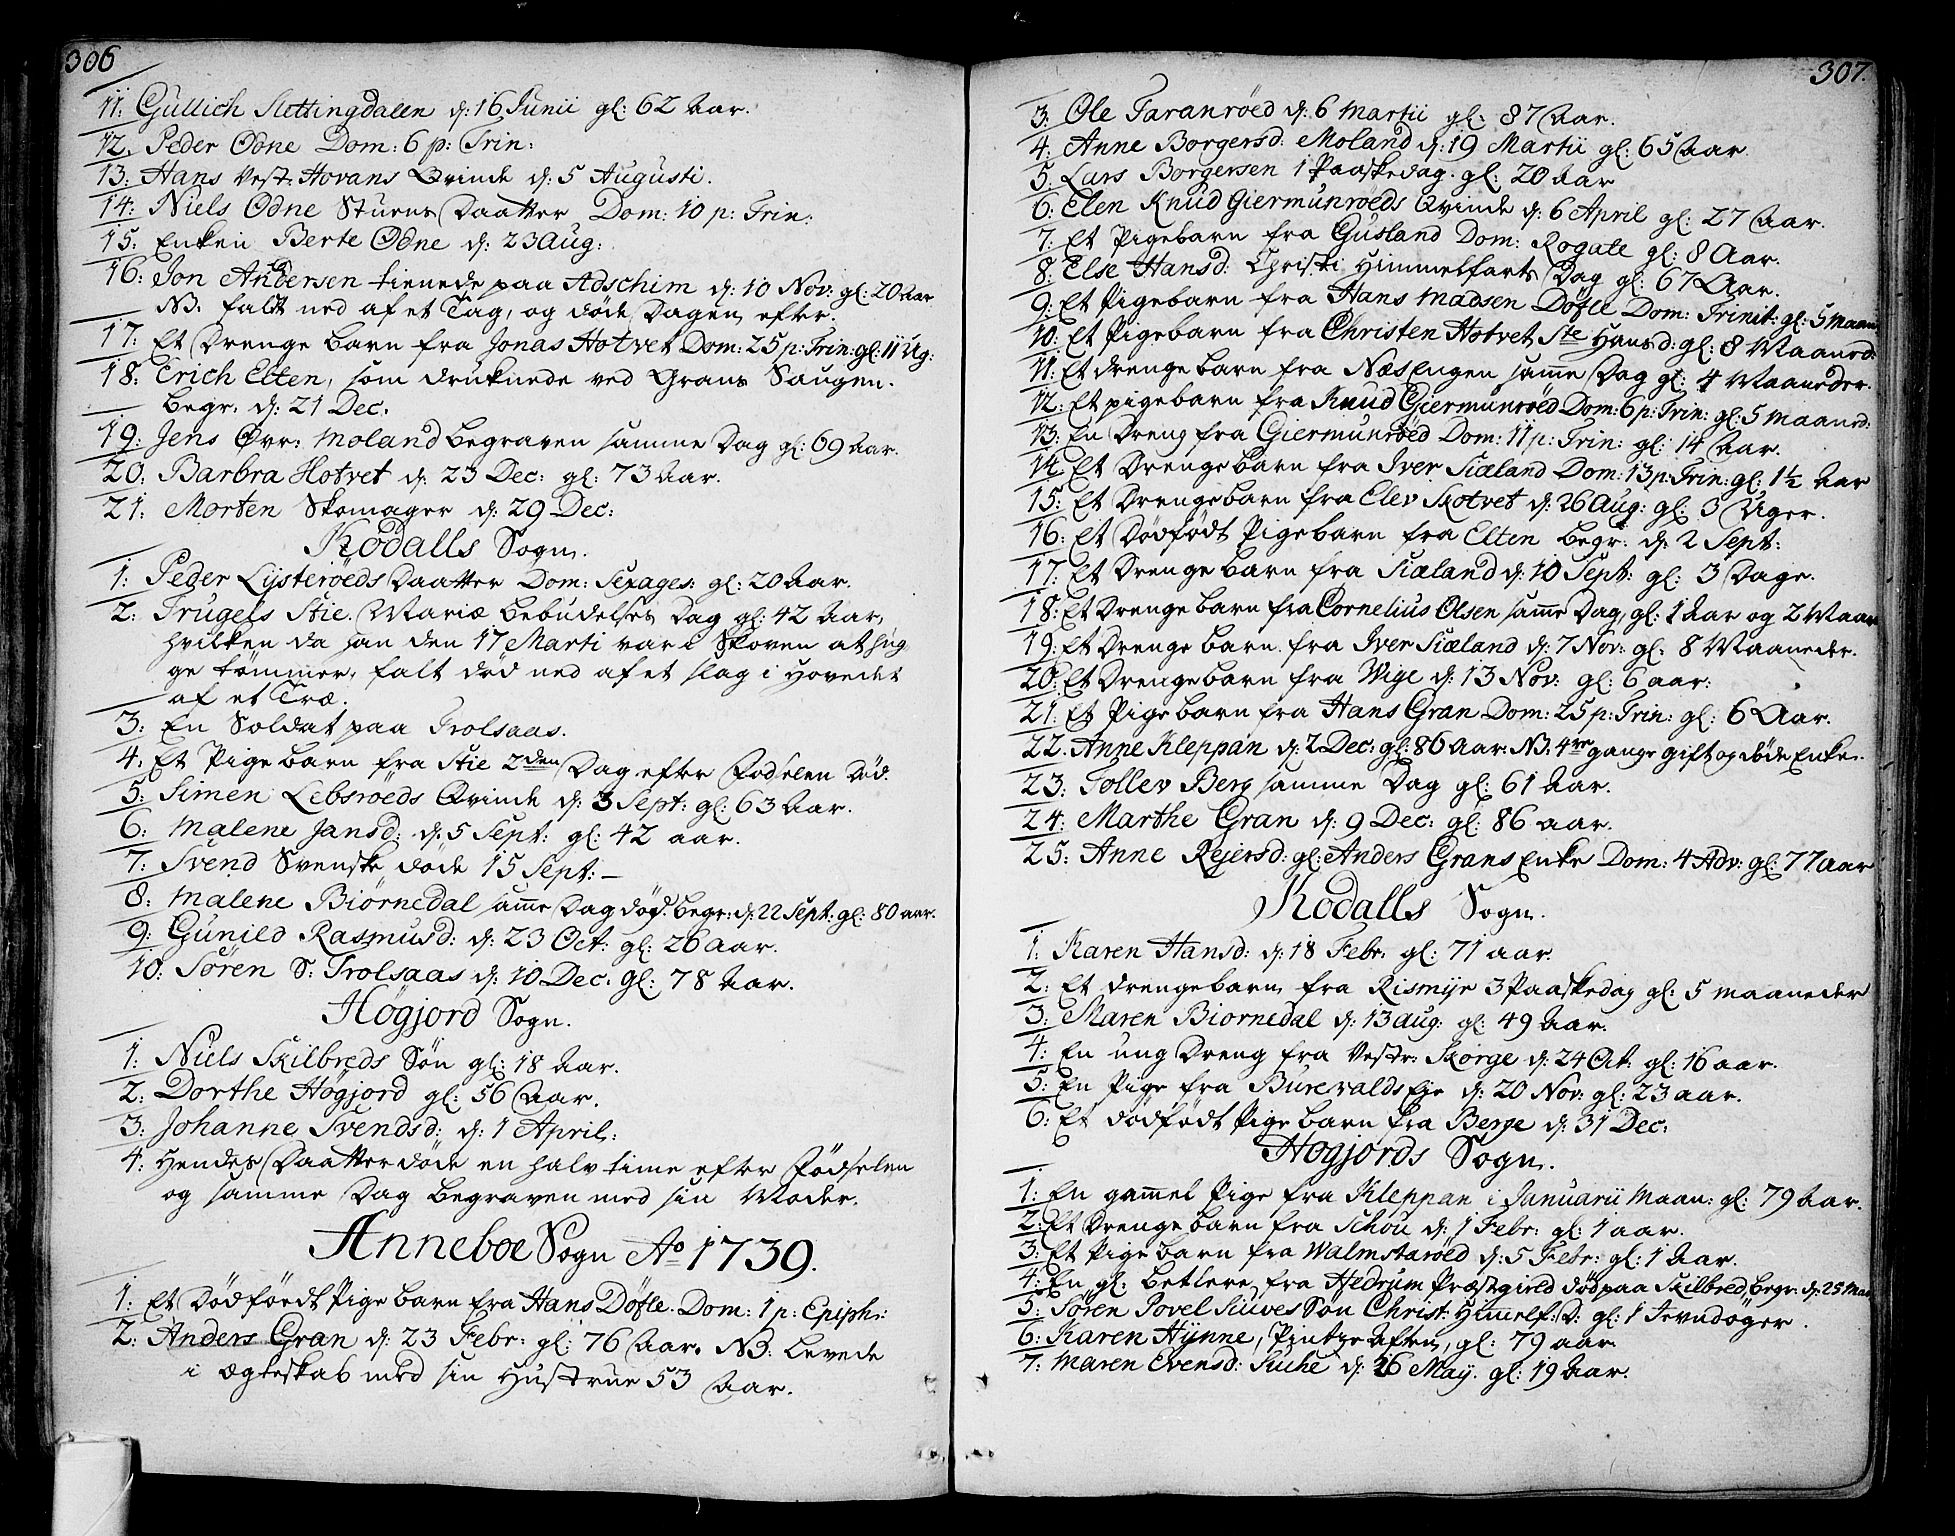 306
11: Gullich Slettingdalen d: 16 Junii gl: 62 Aar.
12. Peder Odne Dom: 6 p: Trin:
13: Hans Vest: Hovans Qvinde d: 5 Augusti.
14: Niels Odne Stuens Daatter Dom: 10 p: Trin:
15: Enken Berte Odne d: 23 Aug:
16: Jon Andersen tienede paa Adschim d: 10 Nov: gl: 20 Aar
NB. faldt ned af et Tag, og døde Dagen efter.
17: Et Drenge barn fra Jonas Hotvet Dom: 25 p: Trin: gl: 11 Ug:
18: Erich Elten, som druknede ved Grans Saugen.
begr. d: 21 Dec.
19: Jens Øvr: Moland begraven samme Dag gl: 69 Aar.
20: Barbra Hotvet d: 23 Dec: gl: 73 Aar.
21: Morten Skomager d: 29 Dec:
Kodalls Sogn.
1: Peder Lysterøeds Daatter Dom: Sexages: gl: 20 Aar.
2: Trugels Stie. Mariæ bebudelses Dag gl: 42 Aar,
hvilken da han den 17 Marti var i Skoven at hug
ge tømmer, falt død ned af et slag i Hovedet
af et Træ.
3: En Soldat paa Trolsaas.
4: Et Pige barn fra Stie 2den Dag efter Fødselen død.
5: Simen Lebsrøeds Qvinde d: 3 Sept: gl: 63 Aar.
6: Malene Jansd: d: 5 Sept: gl: 42 aar.
7: Svend Svenske døde 15 Sept: –
8: Malene Biørnedal samme Dag død. begr: d: 22 Sept: gl: 80 aar.
9: Gunild Rasmusd: d: 23 Oct: gl: 26 aar.
10: Sören S: Trolsaas d: 10 Dec. gl: 78 Aar.
Högjord Sogn.
1: Niels Skilbreds Søn gl: 18 Aar.
2: Dorthe Högjord gl: 56 Aar.
3: Johanne Svendsd: d: 1 April:
4: Hendes Daatter døde en halv time efter Fødselen
og samme Dag begraven med sin Moder.
Anneboe Sogn Ao 1739.
1: Et Dødføedt Pige barn fra Hans Döfle. Dom: 1 p: Epiph:
2: Anders Gran d: 23 Febr: gl: 76 Aar. NB. Levede
i ægteskab med sin Hustrue 53 Aar.
307.
3: Ole Taranröed d: 6 Martii gl: 87 Aar.
4: Anne Borgersd: Moland d: 19 Martii gl: 65 Aar.
5: Lars Borgersen 1 Paaskedag. gl: 20 Aar
6: Elen Knud Giermunrøeds Qvinde d: 6 April gl: 27 Aar.
7: Et Pigebarn fra Gusland Dom: Rogate gl: 8 Aar.
8: Else Hansd: Christi Himmelfarts Dag gl: 67 Aar.
9: Et Pigebarn fra Hans Madsen Döfle Dom: Trinit: gl: 5 Maan
10: Et Pigebarn fra Christen Hotvet Ste Hansd: gl: 8 Maaned:
11: Et drenge barn fra Næs Engen samme Dag gl: 4 Maaneder.
12: Et pigebarn fra Knud Giermunrøed Dom: 6 p: Trin: gl: 5 maaned:
13: En Dreng fra Giermunrøed Dom: 11 p: Trin: gl: 14 Aar.
14: Et Drenge barn fra Iver Siæland Dom: 13 p: Trin: gl: 1½ Aar
15: Et Drengebarn fra Elev Skotvet d: 26 Aug: gl: 3 Uger.
16: Et Dödfödt Pigebarn fra Elten begr: d: 2 Sept:
17: Et Drenge barn fra Siæland d: 10 Sept: gl: 3 Dage.
18: Et Drenge barn fra Cornelius Olsen samme Dag, gl: 1 Aar og 2 Maan
19: Et Drenge barn fra Iver Siæland d: 7 Nov: gl: 8 Maaneder.
20: Et Drengebarn fra Wige d: 13 Nov: gl: 6 aar:
21: Et Pige barn fra Hans Gran Dom: 25 p: Trin: gl: 6 Aar.
22. Anne Kleppan d: 2 Dec: gl: 86 Aar. NB. 4re gange gift og døde Enke.
23: Tollev Berg samme Dag gl: 61 Aar.
24: Marthe Gran d: 9 Dec: gl: 86 aar.
25: Anne Rejersd: gl: Anders Grans Enke Dom: 4 Adv: gl: 77 Aar
Kodalls Sogn.
1: Karen Hansd: d: 18 Febr: gl: 71 aar.
2: Et drengebarn fra Rismyr 3 Paaskedag gl: 5 maaneder
3: Maren Biornedal d: 13 aug: gl: 49 Aar.
4: En ung Dreng fra Vestr: Skorge d: 24 Oct: gl: 16 aar.
5: En Pige fra Burevalds Eje d: 20 Nov: gl: 23 aar.
6: Et dödfödt Pige barn fra Berge d: 31 Dec:
Högjords Sogn.
1: En gammel Pige fra Kleppan i Januarii Maan: gl: 79 Aar.
2: Et Drenge barn fra Schou d: 1 Febr: gl: 1 aar.
3: Et Pige barn fra Walmstaröed d: 5 Febr: gl: 1 Aar.
4: En gl: betlere fra Hedrum Præstgield död paa Skilbred, begr. d: 25 Mar
5: Sören Povel Siuves Søn Christ: Himmelf: D: gl: 1 Jevndøger.
6: Karen Hynne, Pintze Aften, gl: 79 aar
7: Maren Evensd: Siuhe d: 26 May. gl: 19 Aar.